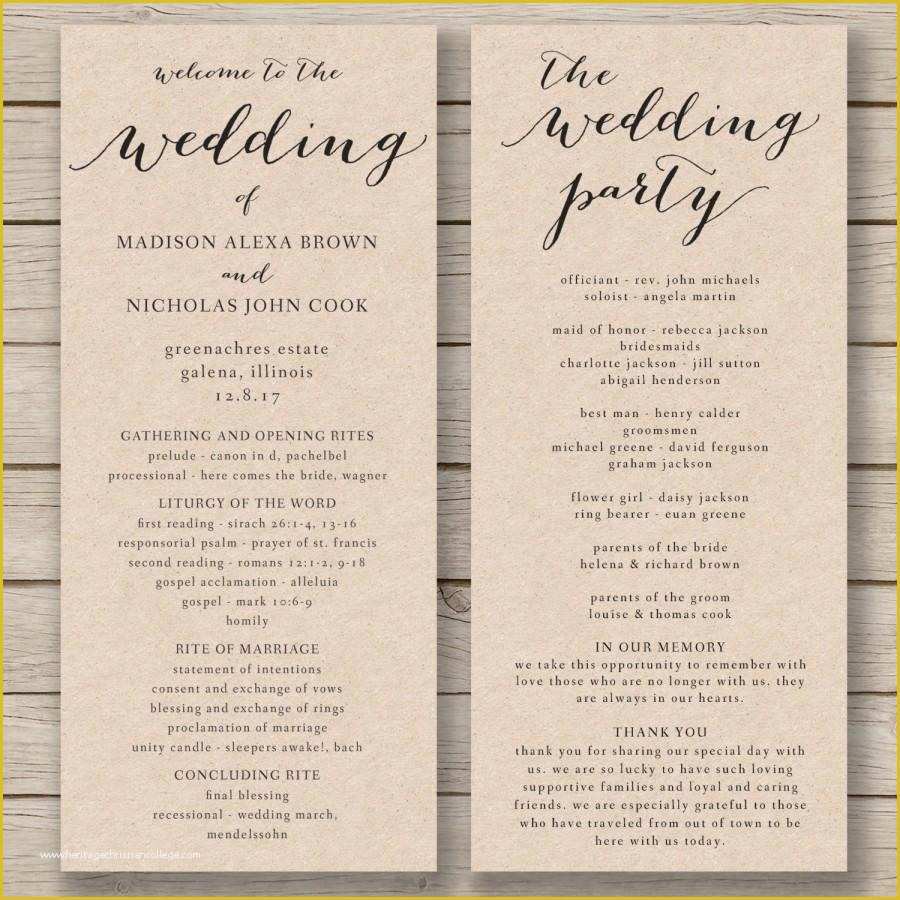 welcome to the
wedding
of
MADISON ALEXA BROWN
and
NICHOLAS JOHN COOK
greenachres estate
galena, illinois
12.8.17
GATHERING AND OPENING RITES
prelude - canon in d, pachelbel
processional - here comes the bride, wagner
LITURGY OF THE WORD
first reading - sirach 26:1-4, 13-16
responsorial psalm - prayer of st. francis
second reading - romans 12:1-2, 9-18
gospel acclamation - alleluia
gospel - mark 10:6-9
homily
RITE OF MARRIAGE
statement of intentions
consent and exchange of vows
blessing and exchange of rings
proclamation of marriage
unity candle - sleepers awake!, bach
CONCLUDING RITE
final blessing
recessional - wedding march,
mendelssohn
www.heritagechristiancollege.com
the
wedding
party
officiant - rev. john michaels
soloist - angela martin
maid of honor - rebecca jackson
bridesmaids
charlotte jackson - jill sutton
abigail henderson
best man - henry calder
groomsmen
michael greene - david ferguson
graham jackson
flower girl - daisy jackson
ring bearer - euan greene
parents of the bride
helena & richard brown
parents of the groom
louise & thomas cook
IN OUR MEMORY
we take this opportunity to remember with
love those who are no longer with us. they
are always in our hearts.
THANK YOU
thank you for sharing our special day with
us. we are so lucky to have such loving
supportive families and loyal and caring
friends. we are especially grateful to those
who have traveled from out of town to be
here with us today.